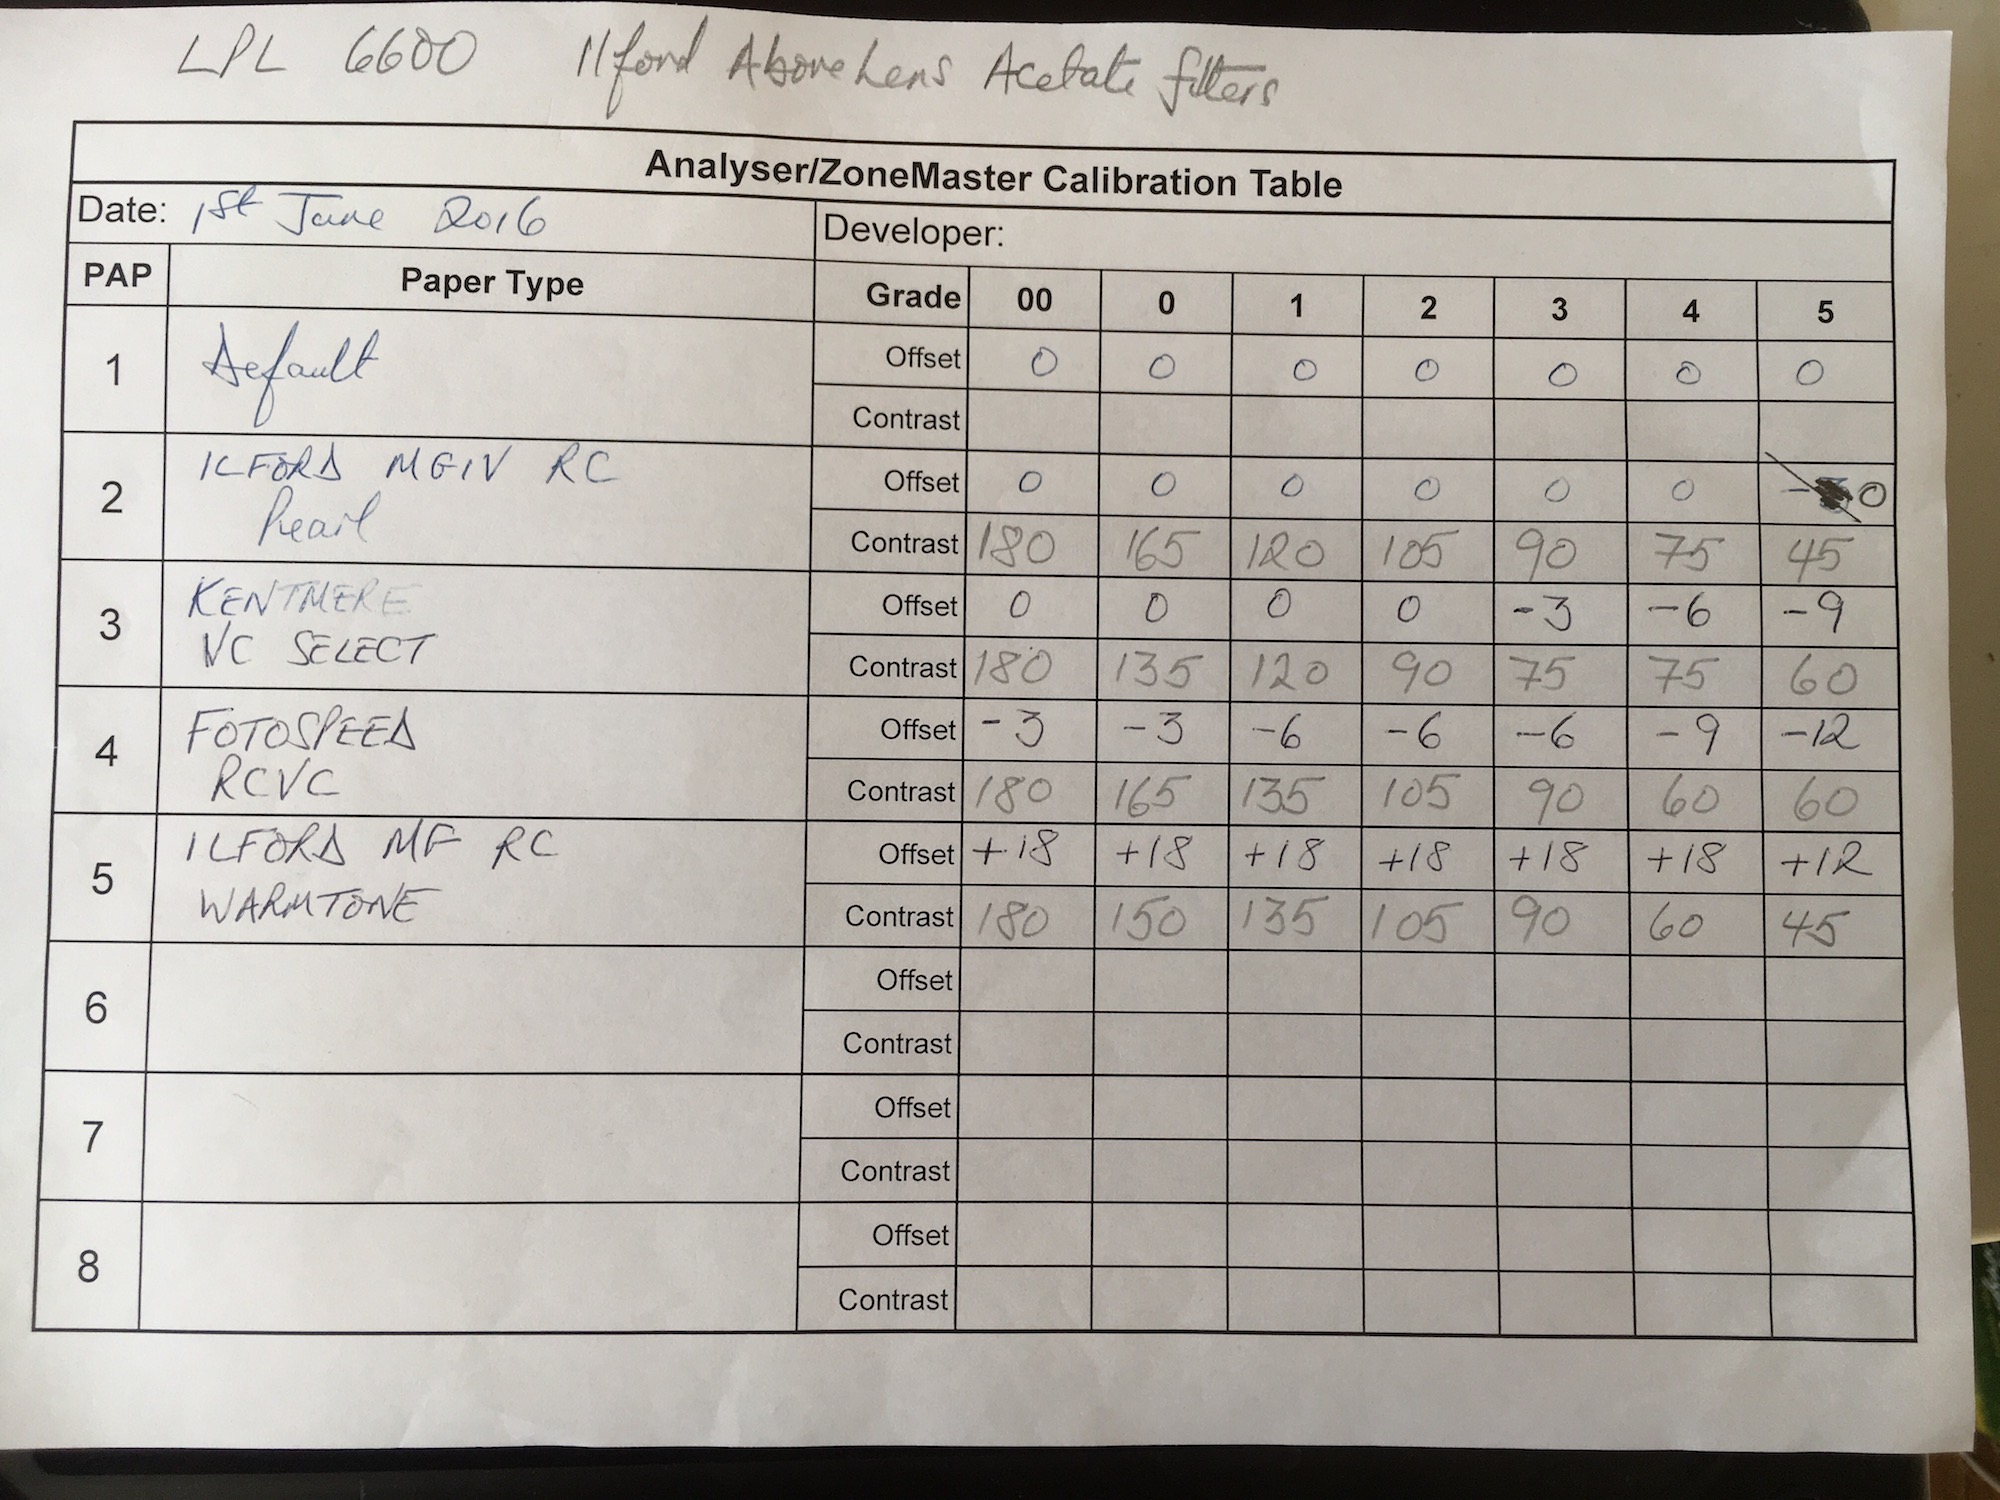 LPL 6600 Ilford Above Lens Acetate filters
Analyser/ZoneMaster Calibration Table
Date: 1st June 2016 Developer:
PAP Paper Type Grade 00 0 1 2 3 4 5
1 Default Offset 0 0 0 0 0 0 0
Contrast
2 ILFORD MGIV RC Offset 0 0 0 0 0 0 0
Pearl Contrast 180 165 120 105 90 75 45
3 KENTMERE Offset 0 0 0 0 -3 -6 -9
VC SELECT Contrast 180 135 120 90 75 75 60
4 FOTOSPEED Offset -3 -3 -6 -6 -6 -9 -12
RCVC Contrast 180 165 135 105 90 60 60
5 ILFORD MG RC Offset +18 +18 +18 +18 +18 +18 +12
WARMTONE Contrast 180 150 135 105 90 60 45
6 Offset
Contrast
7 Offset
Contrast
8 Offset
Contrast